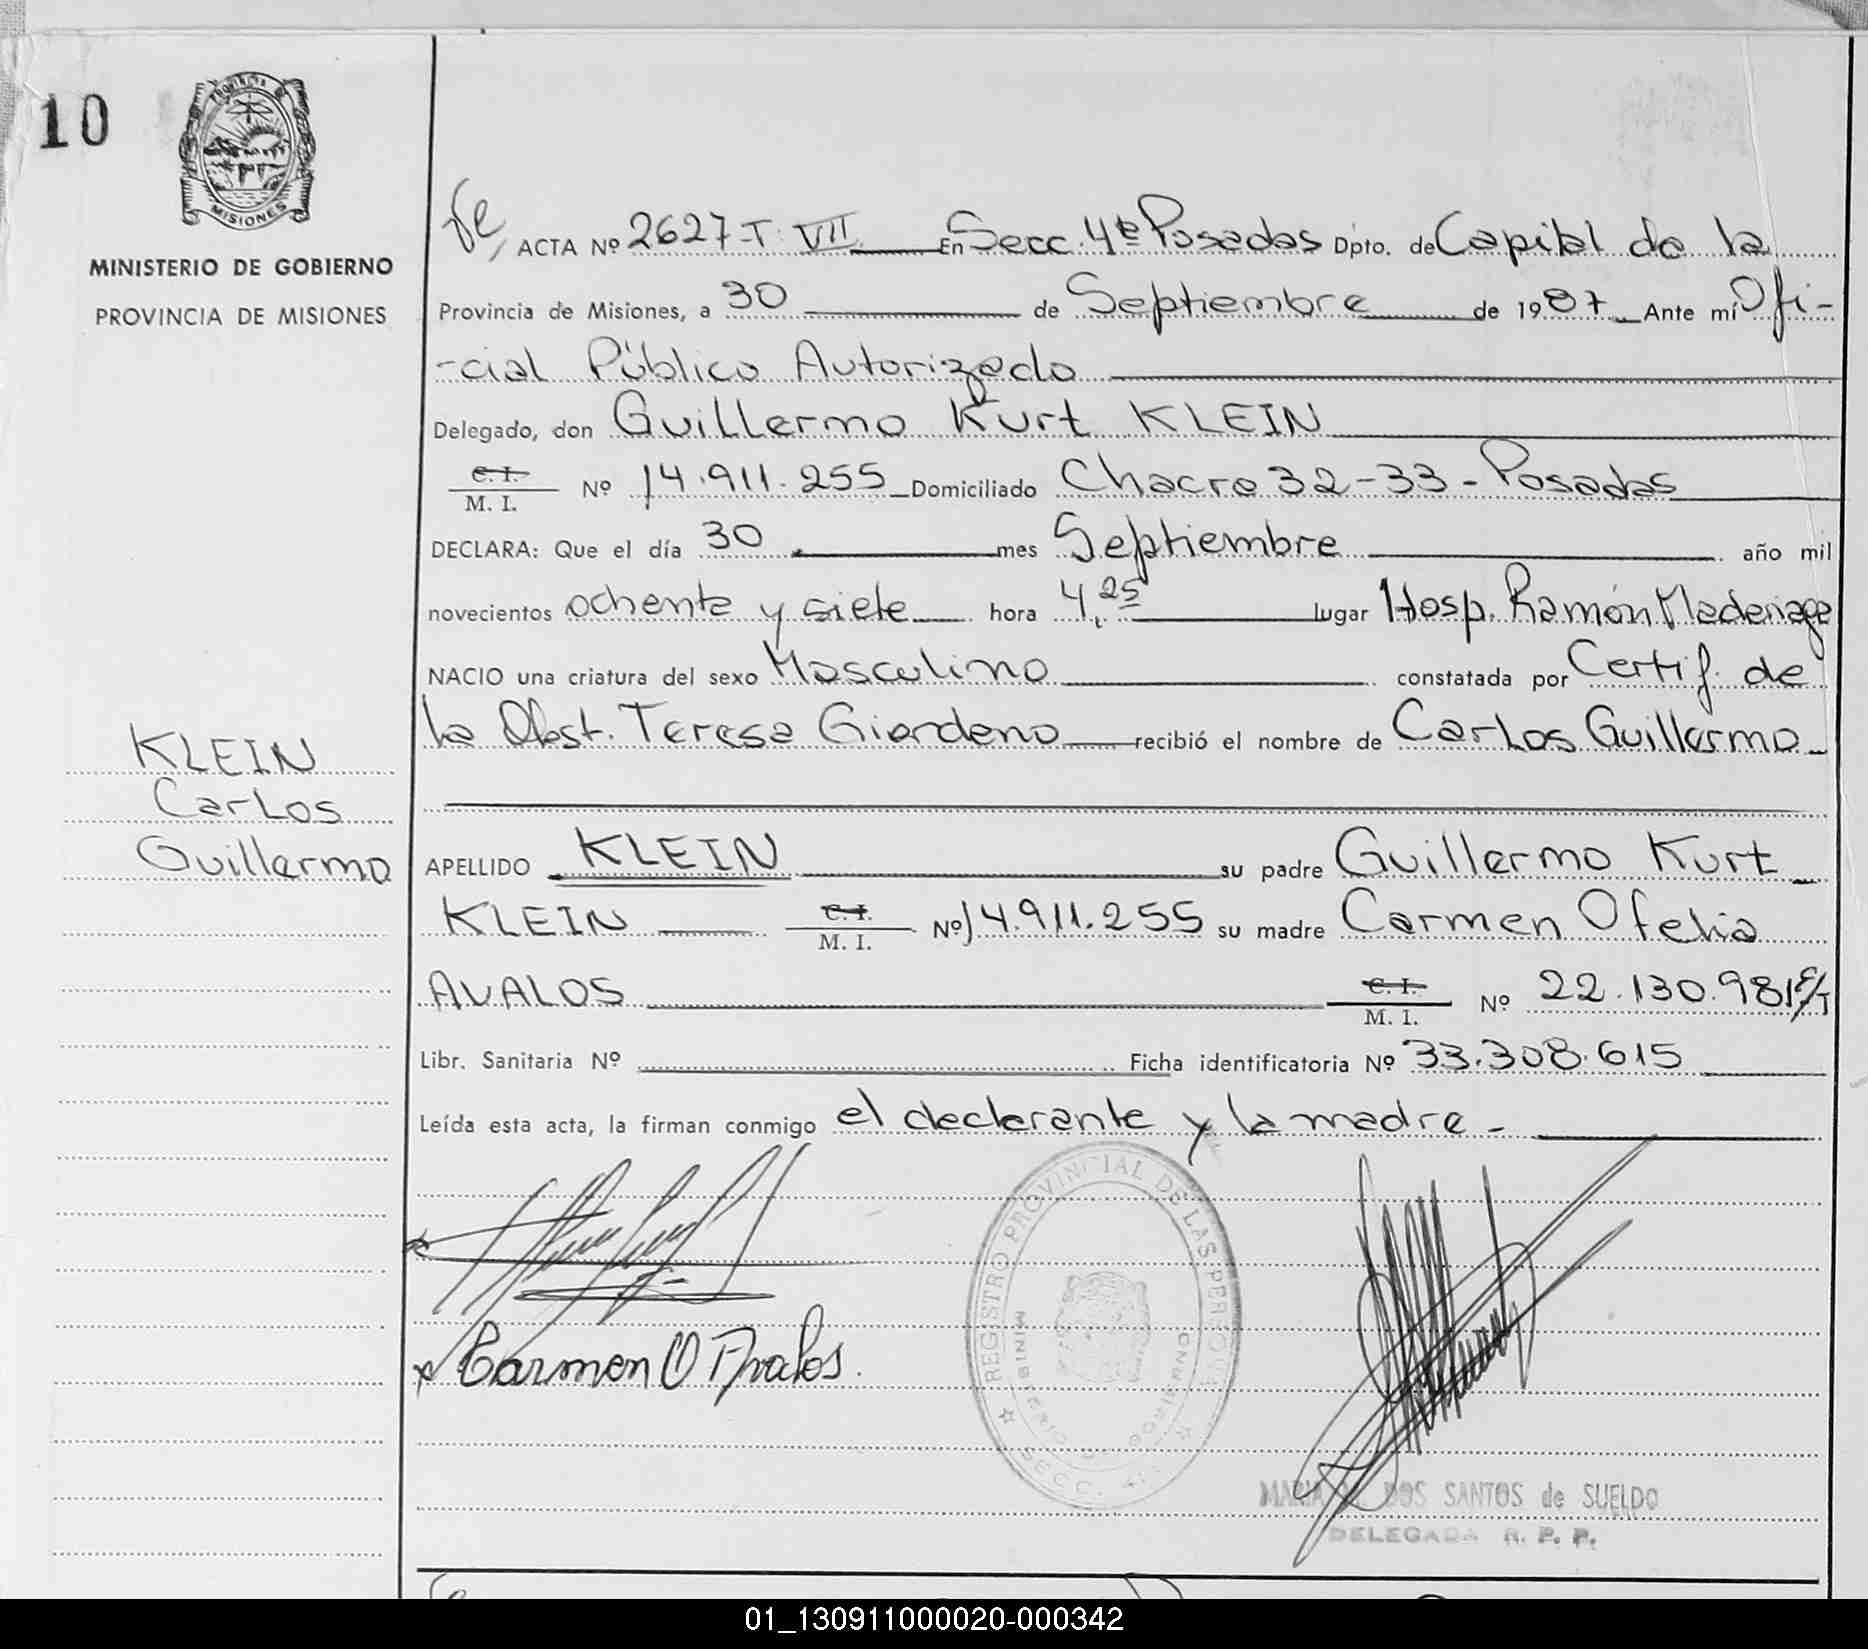 10
PROVINCIA DE
MISIONES
MINISTERIO DE GOBIERNO
PROVINCIA DE MISIONES
ACTA Nº 2627-T. VII En Secc. 4ta Posadas Dpto. de Capital de la
Provincia de Misiones, a 30 de Septiembre de 1987 Ante mí Ofi-
-cial Público Autorizado
Delegado, don Guillermo Kurt KLEIN
C. I.
M. I. Nº 14.911.255 Domiciliado Chacra 32-33- Posadas
DECLARA: Que el día 30 mes Septiembre año mil
novecientos ochenta y siete hora 4,25 lugar Hosp. Ramón Madariaga
NACIO una criatura del sexo Masculino constatada por Certif. de
la Obst. Teresa Giordano recibió el nombre de Carlos Guillermo
KLEIN
Carlos
Guillermo
APELLIDO KLEIN su padre Guillermo Kurt
KLEIN C. I.
M. I. Nº 14.911.255 su madre Carmen Ofelia
AVALOS C. I.
M. I. Nº 22.130.981
Libr. Sanitaria Nº Ficha identificatoria Nº 33.308.615
Leída esta acta, la firman conmigo el declarante y la madre -
x Carmen O Avalos.
REGISTRO PROVINCIAL DE LAS PERSONAS
MINISTERIO DE GOBIERNO
SECC.
MARIA DOS SANTOS de SUELDO
DELEGADA R. P. P.
01_130911000020-000342